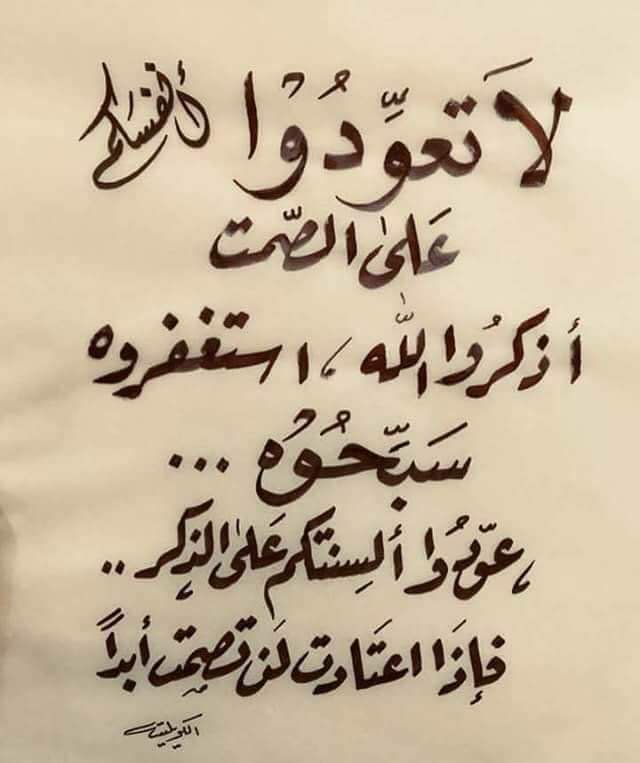 لَا تعوِّدُوْا أنفسَكم
عَلىٰ الصّمت
أذكرُوا اللّٰه ، استغفروه
سَبِّحُوْه ...
، عوّدُوا ألسِنتكم عَلىٰ الذِكر ..
فإذَا اعتَادت لَن تصمِت أبداً